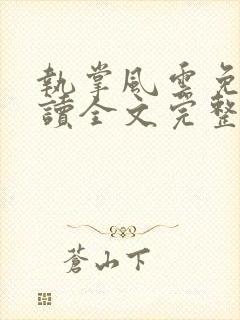 執掌風雲免
讀全文完整
蒼山下